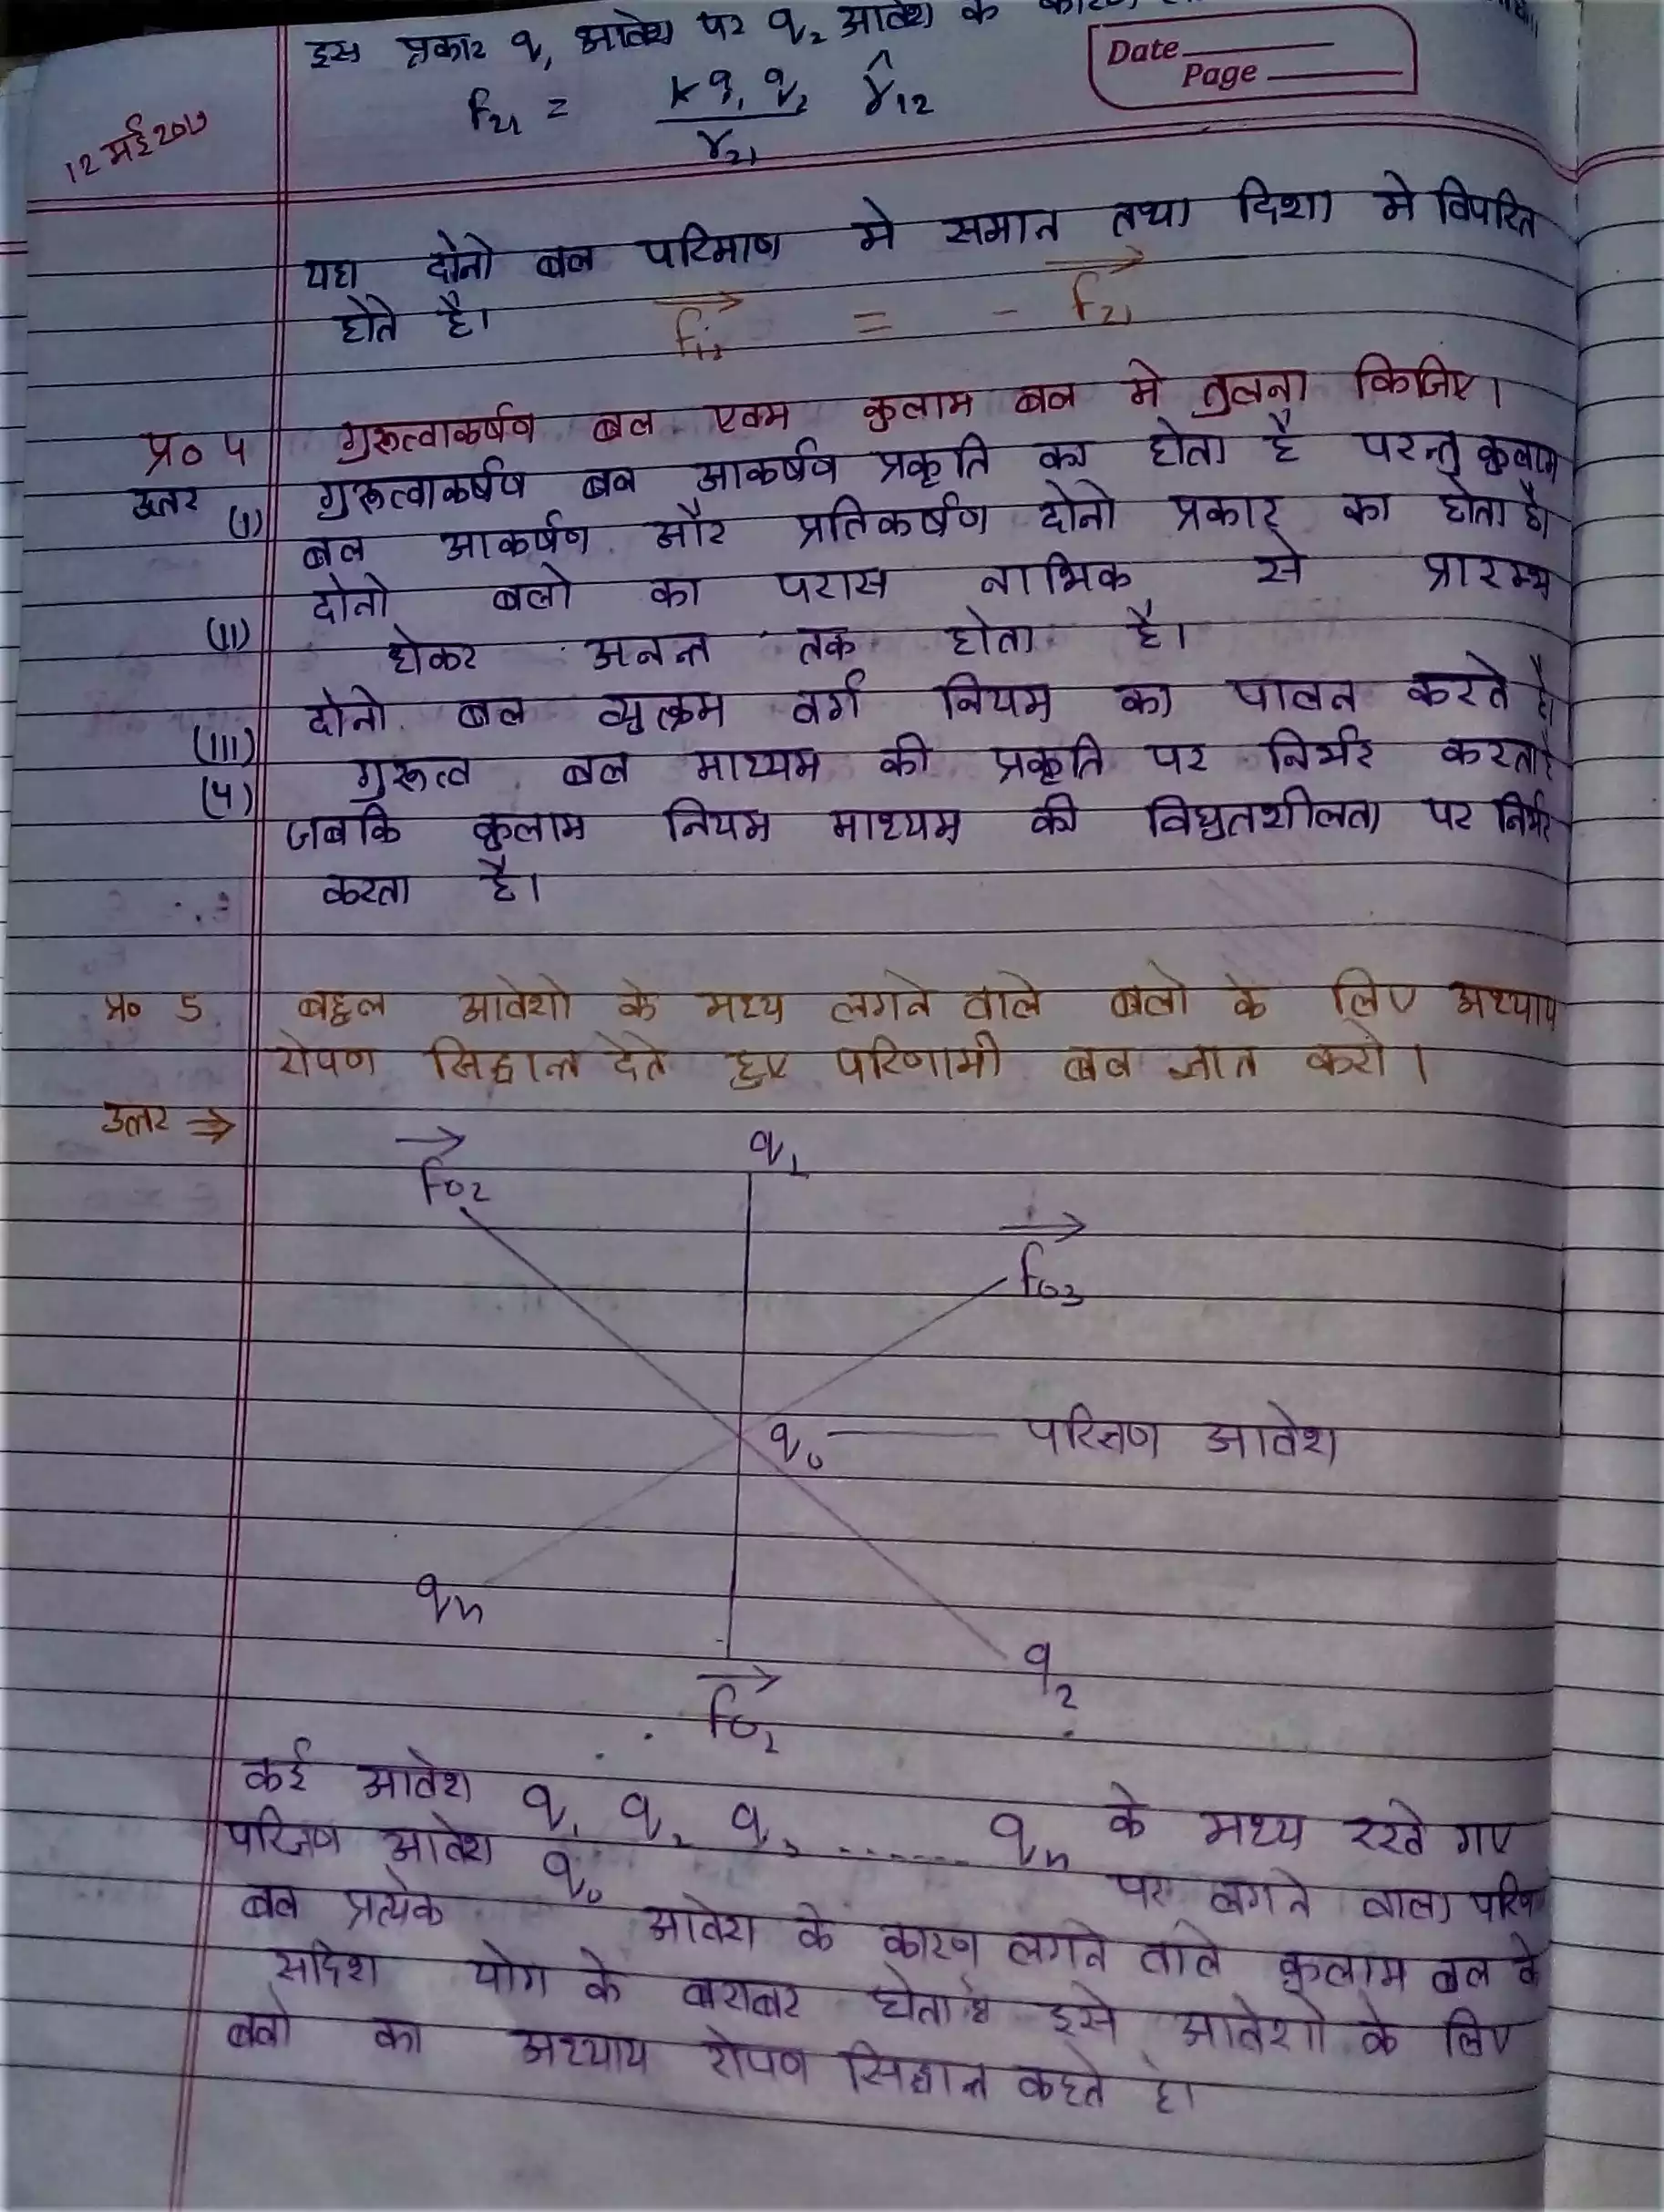 इस प्रकार q1 आवेश पर q2 आवेश के
Date
Page
12 मई 2017
F21 = K q1 q2 / r21 r̂12
यहा दोनो बल परिमाण मे समान तथा दिशा मे विपरित
होते है।
F12 = - F21
प्र० 4 गुरूत्वाकर्षण बल एवम कुलाम बल मे तुलना किजिए।
उत्तर (i) गुरूत्वाकर्षण बल आकर्षण प्रकृति का होता है परन्तु कुलाम
बल आकर्षण और प्रतिकर्षण दोनो प्रकार का होता है।
(II) दोनो बलो का परास नाभिक से प्रारम्भ
होकर अनन्त तक होता है।
(III) दोनो बल व्युत्क्रम वर्ग नियम का पालन करते है।
(4) गुरूत्व बल माध्यम की प्रकृति पर निर्भर करता है
जबकि कुलाम नियम माध्यम की विधुतशीलता पर निर्भर
करता है।
प्र० 5 बहुल आवेशो के मध्य लगने वाले बलो के लिए अध्याय
रोपण सिद्वान्त देते हुए परिणामी बल ज्ञात करो।
उत्तर ⇒
F02
q1
F03
q0 परिक्षण आवेश
qn
q2
F02
कई आवेश q1 q2 q3 ....... qn के मध्य रखे गए
परिक्षण आवेश q0 पर लगने वाला
बल प्रत्येक आवेश के कारण लगने वाले कुलाम बल के
सदिश योग के बराबर होता है इसे आवेशो के लिए
बलो का अध्याय रोपण सिद्वान्त कहते है।